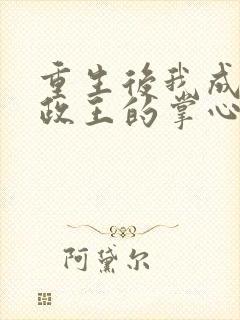 重生後我成
政王的掌心
阿黛尔